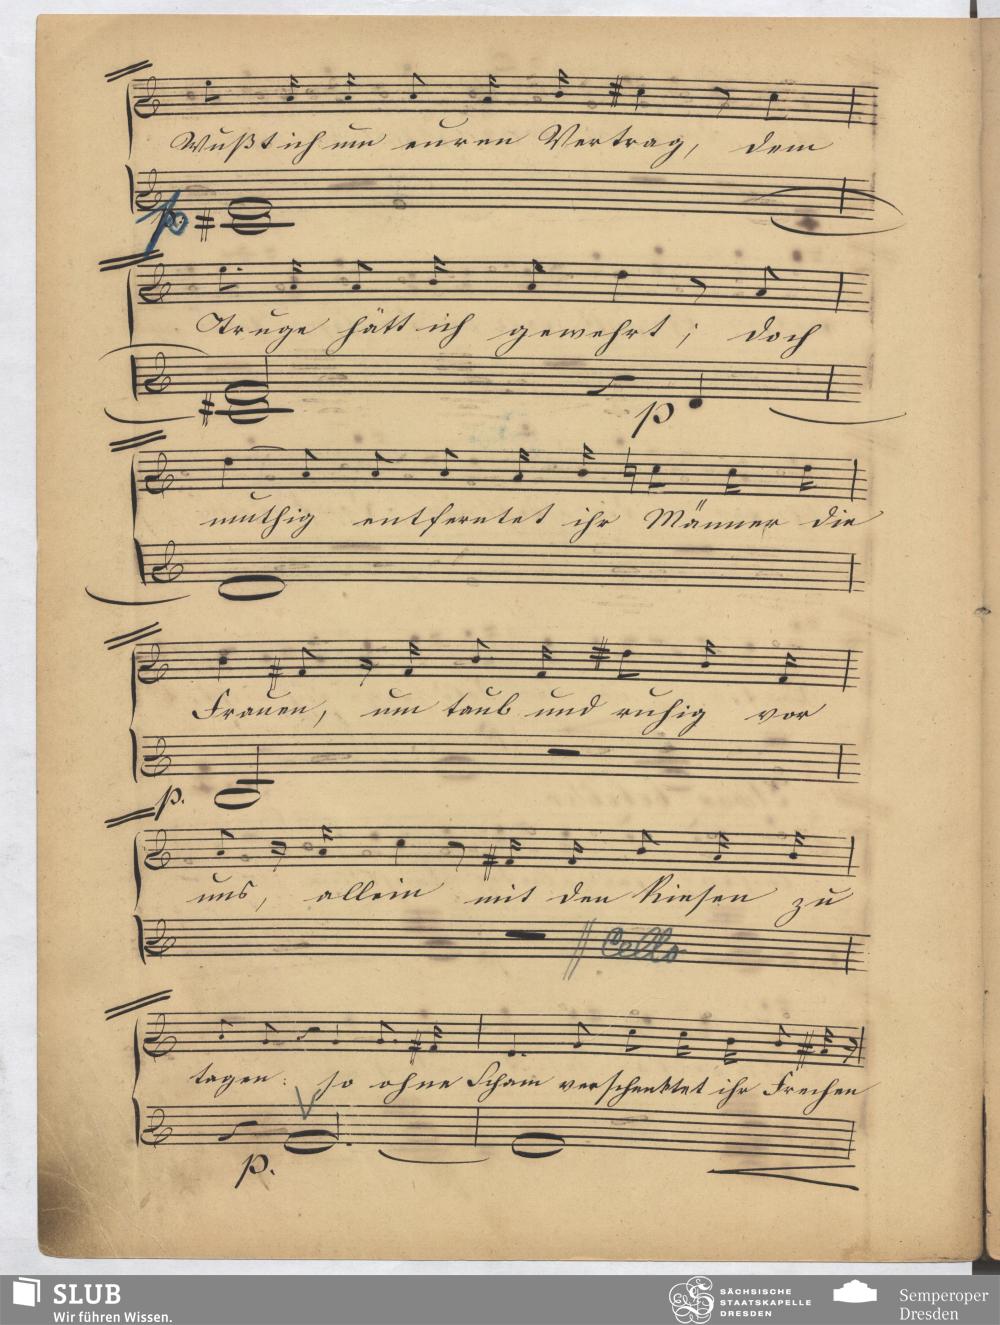 Wußt ich um euren Vertrag, dem
p
Truge hätt ich gewehrt; doch
p
muthig entferntet ihr Männer die
Frauen, um taub und ruhig vor
p.
uns, allein mit den Riesen zu
Cello
tagen: so ohne Scham verschenktet ihr Frechen
p.
SLUB
Wir führen Wissen.
SÄCHSISCHE
STAATSKAPELLE
DRESDEN
Semperoper
Dresden